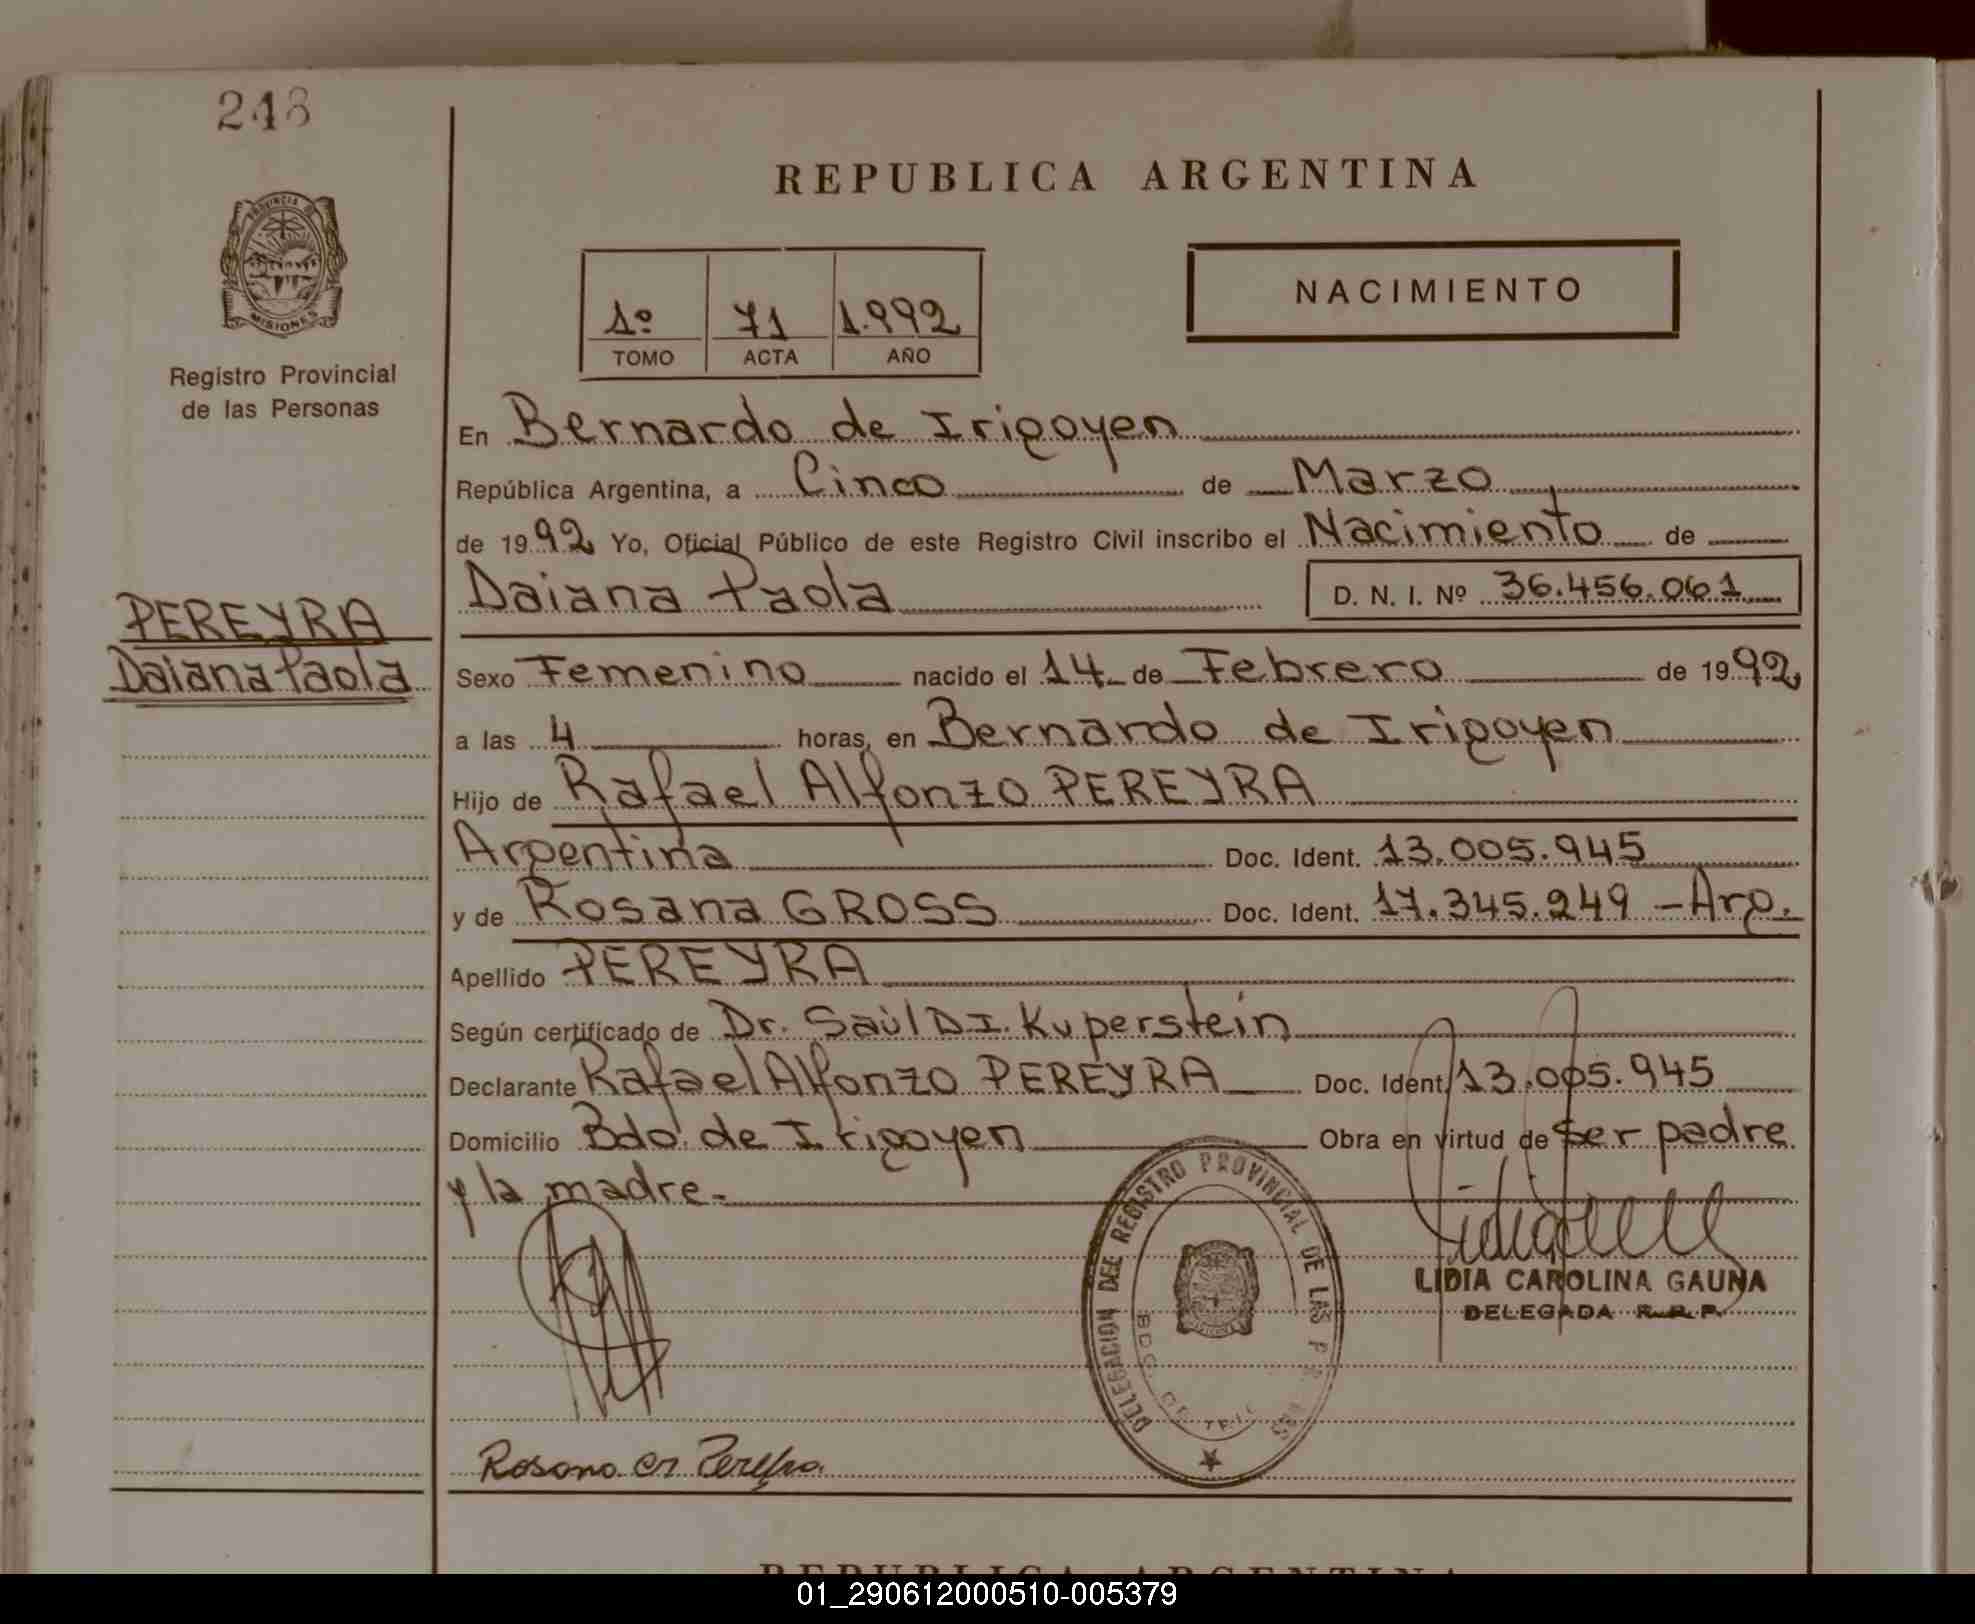 248
PROVINCIA DE
MISIONES
Registro Provincial
de las Personas
REPUBLICA ARGENTINA
1º 71 1.992
TOMO ACTA AÑO
NACIMIENTO
En Bernardo de Irigoyen
República Argentina, a Cinco de Marzo
de 1992 Yo, Oficial Público de este Registro Civil inscribo el Nacimiento de
Daiana Paola D. N. I. Nº 36.456.061
PEREYRA
Daiana Paola
Sexo Femenino nacido el 14 de Febrero de 1992
a las 4 horas, en Bernardo de Irigoyen
Hijo de Rafael Alfonzo PEREYRA
Argentina Doc. Ident. 13.005.945
y de Rosana GROSS Doc. Ident. 17.345.249 - Arg.
Apellido PEREYRA
Según certificado de Dr. Saúl D.I. Kuperstein
Declarante Rafael Alfonzo PEREYRA Doc. Ident. 13.005.945
Domicilio Bdo. de Irigoyen Obra en virtud de ser padre
y la madre.-
DELEGACION DEL REGISTRO PROVINCIAL DE LAS
BDO. DE
LIDIA CAROLINA GAUNA
DELEGADA R.P.P.
Rosana
REPUBLICA ARGENTINA
01_290612000510-005379